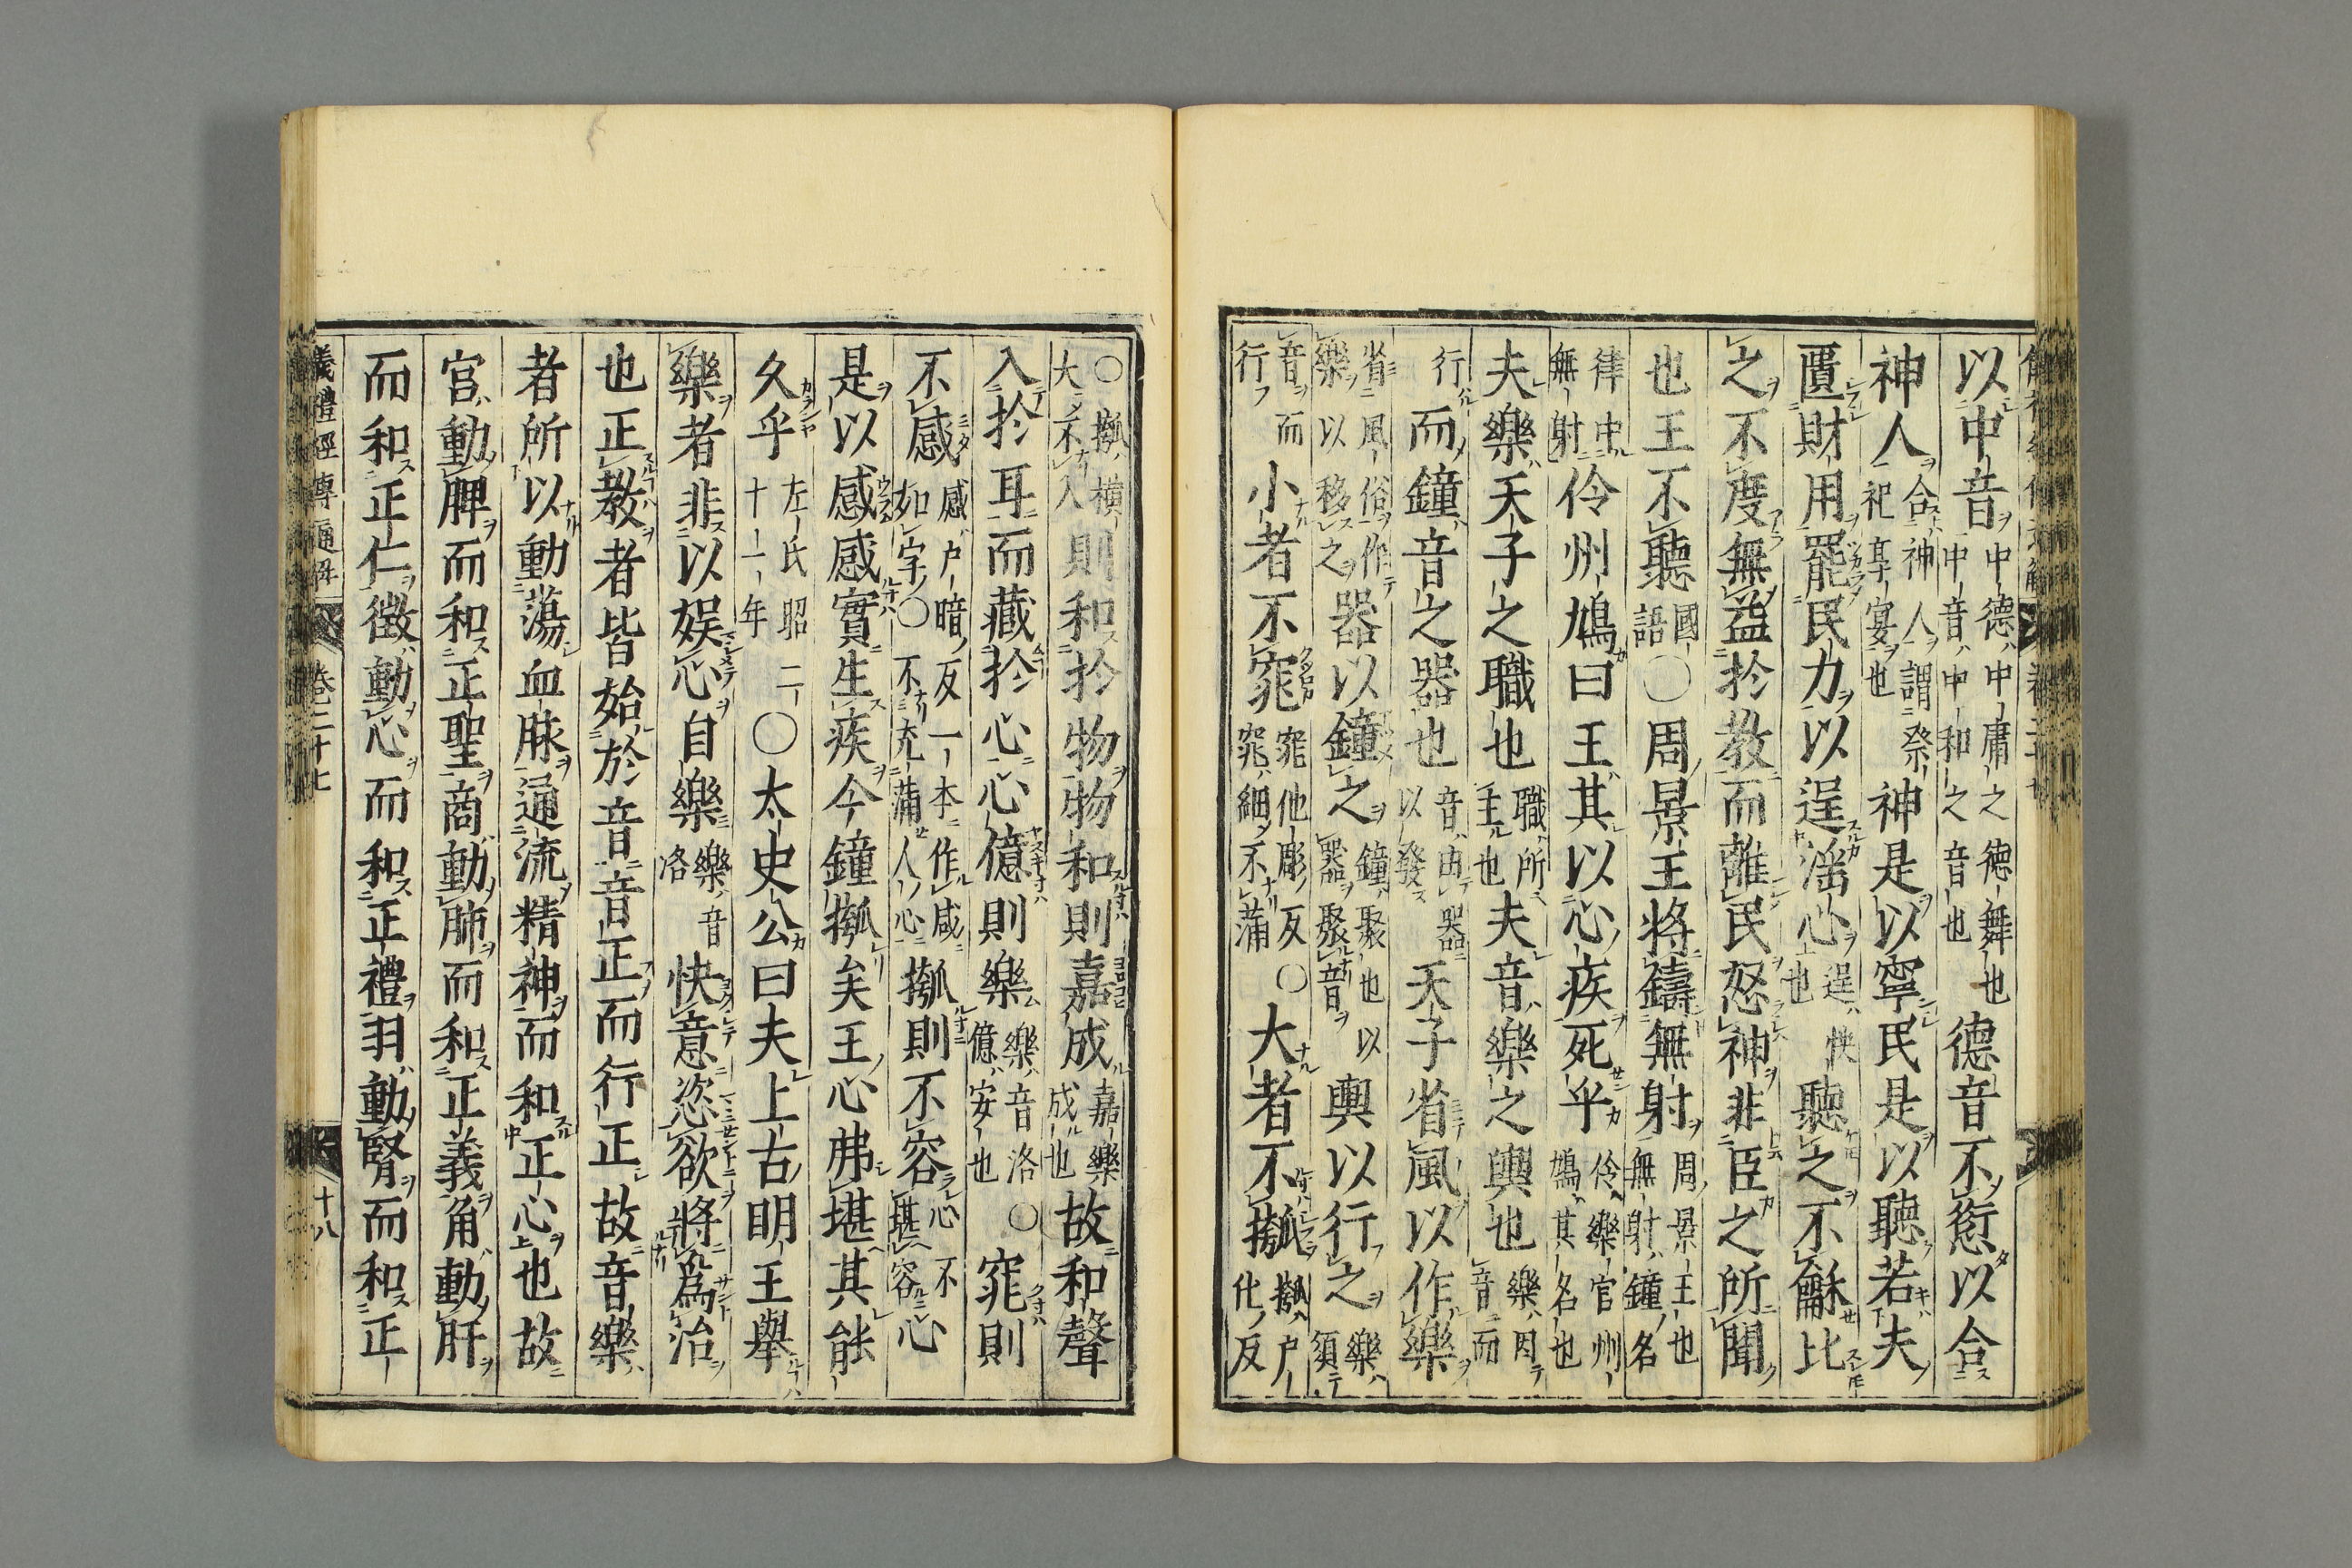 以中音中德中庸之德舞也中音中和之音也德音不愆以合
神人合神人謂祭祀享宴也神是以寧民是以聽若夫
匱財用罷民力以逞淫心逞快也聽之不龢比
之不度無益於教而離民怒神非臣之所聞
也王不聽國語○周景王將鑄無射周景王也無射鐘名
律中無射伶州鳩曰王其以心疾死乎伶樂官州鳩其名也
夫樂天子之職也職所主也夫音樂之輿也樂因音而
行而鐘音之器也音由器以發天子省風以作樂
省風俗作樂以移之器以鐘之鐘聚也以器聚音輿以行之樂須
音而行小者不窕窕他彫反窕細不滿○大者不摦摦戶化反
○摦橫大不入則和於物物和則嘉成嘉樂成也故和聲
入於耳而藏於心心億則樂樂音洛億安也○窕則
不感感戶暗反一本作咸如字○不充滿人心摦則不容心不堪容心
是以感感實生疾今鐘摦矣王心弗堪其能
久乎左氏昭二十一年○太史公曰夫上古明王舉
樂者非以娛心自樂樂音洛快意恣欲將爲治
也正教者皆始於音音正而行正故音樂
者所以動蕩血脉通流精神而和正心也故
宮動脾而和正聖商動肺而和正義角動肝
而和正仁徵動心而和正禮羽動腎而和正
儀禮經傳通解 卷二十七 十八